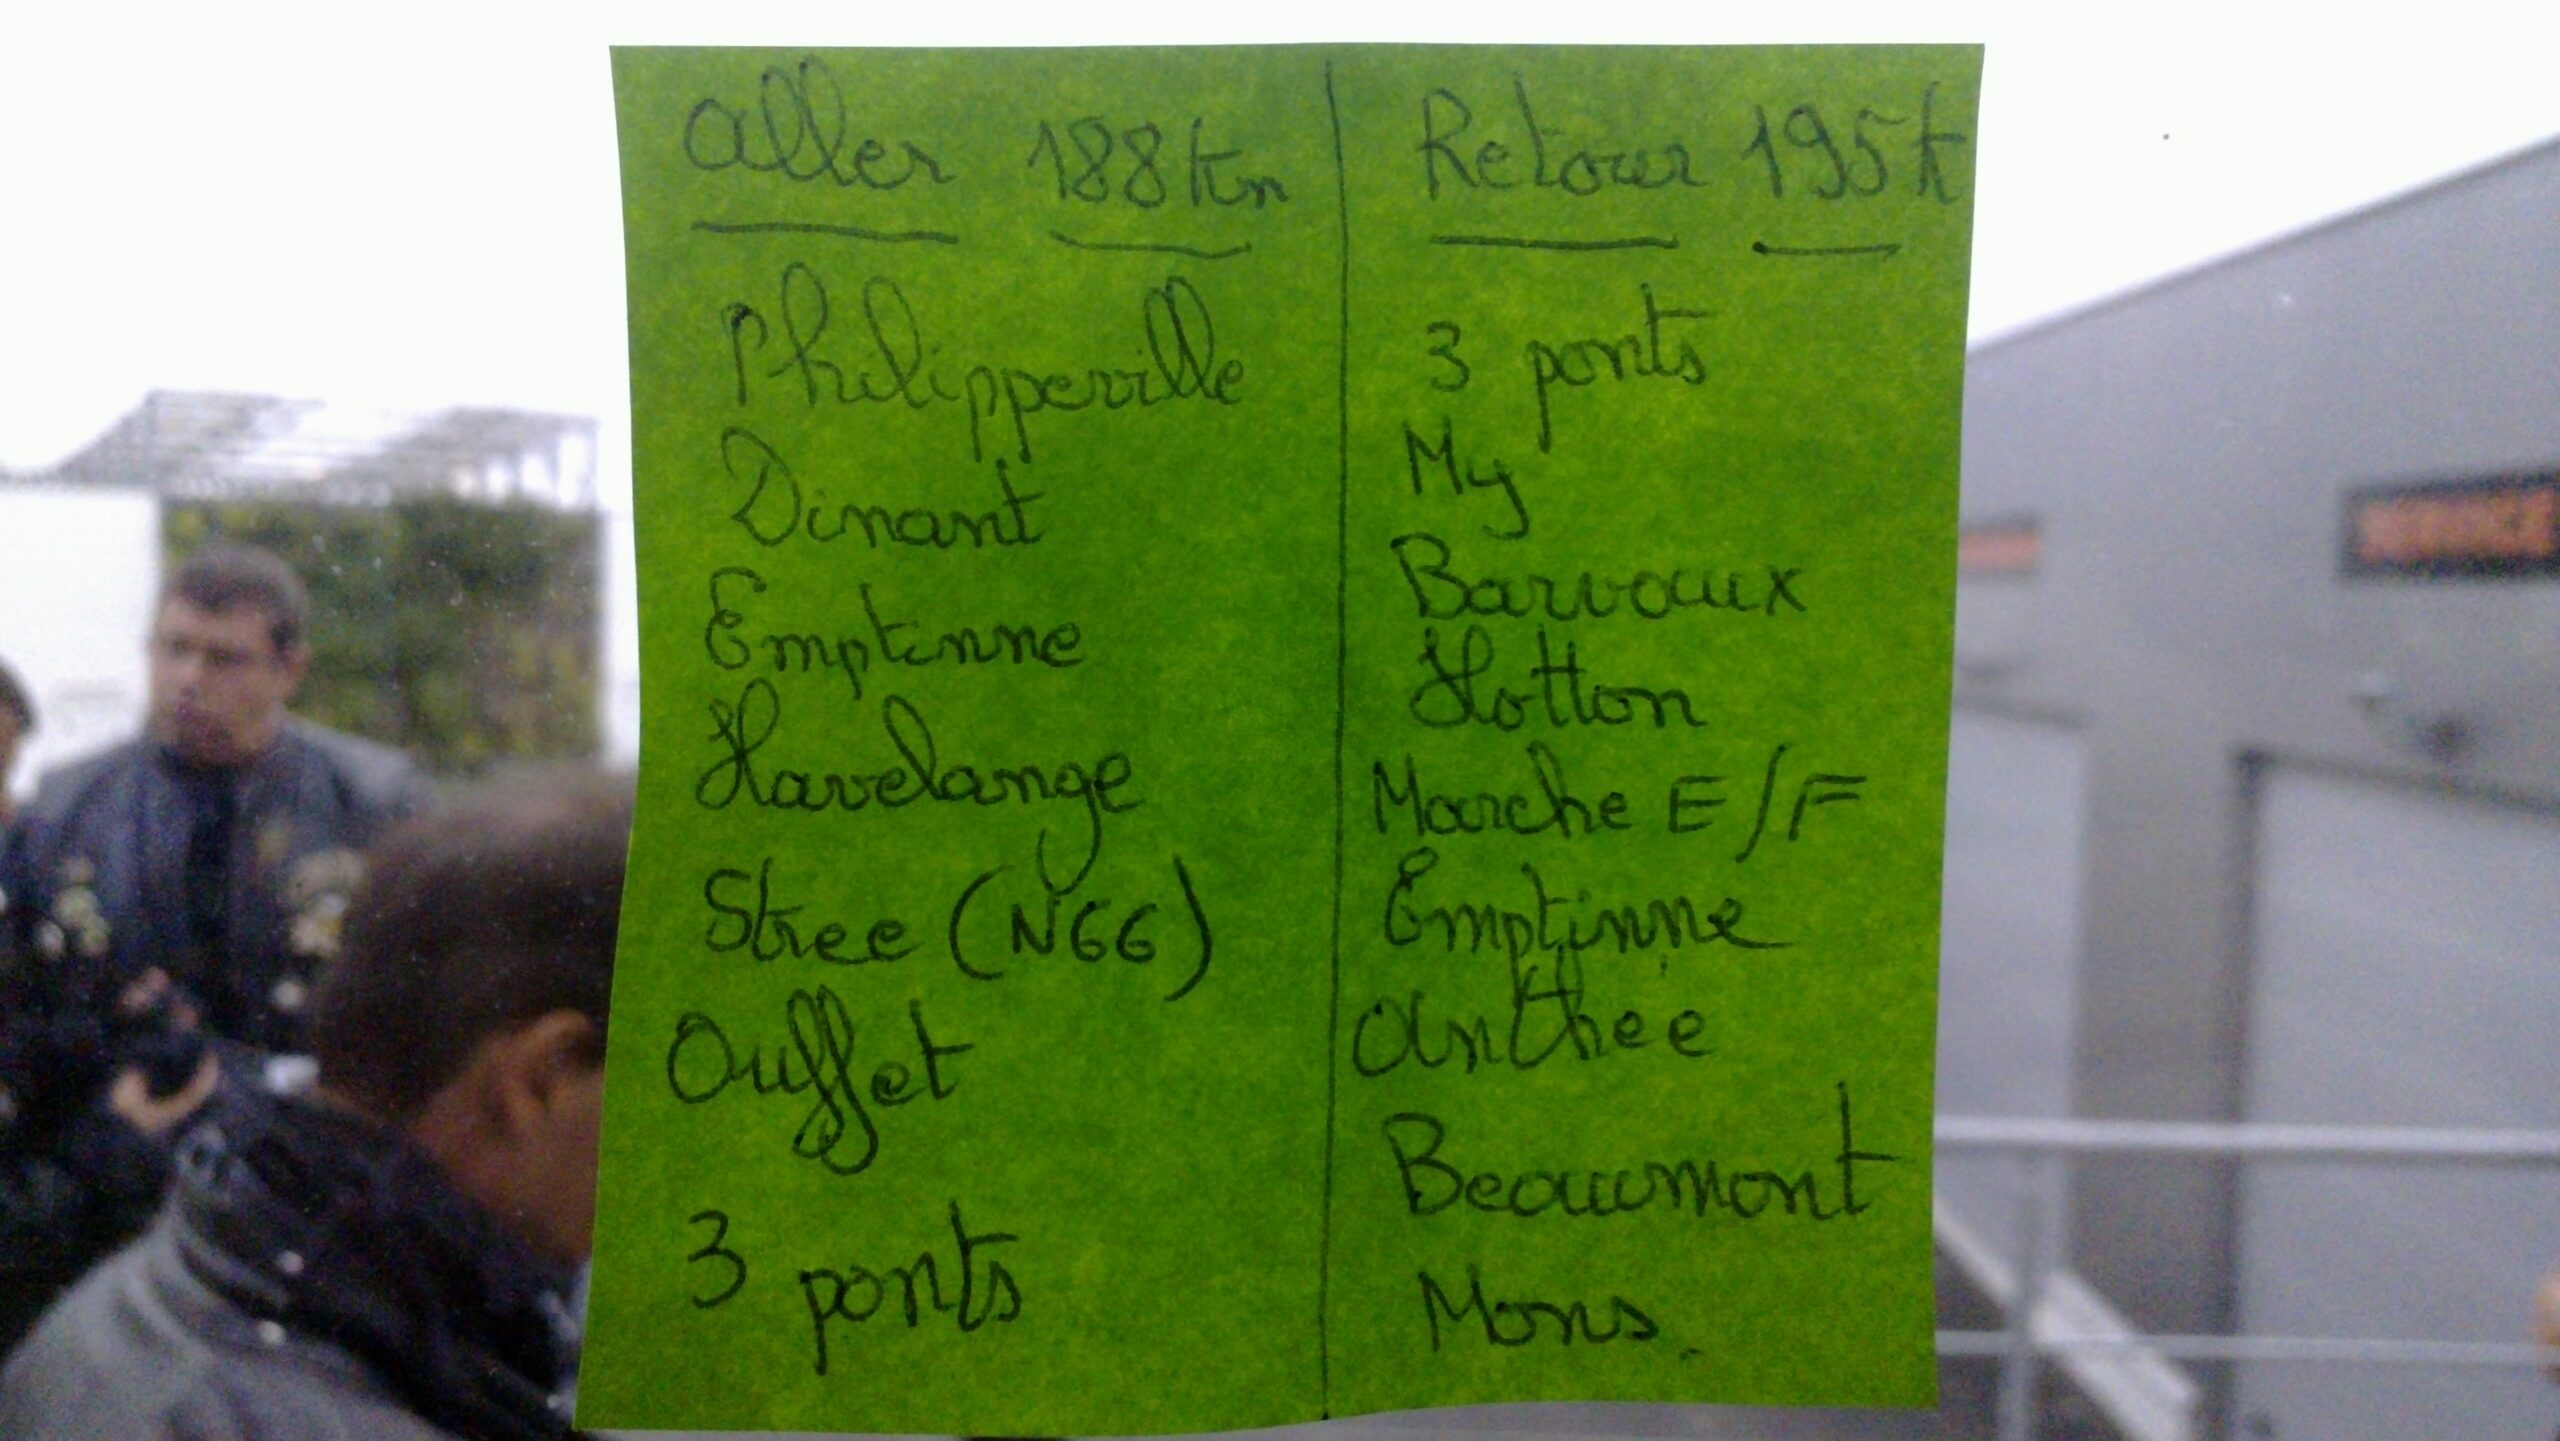 Aller 188 km
Philippeville
Dinant
Emptinne
Havelange
Stree (N66)
Ouffet
3 ponts
Retour 195 k
3 ponts
My
Barvaux
Hotton
Marche E/F
Emptinne
Anthee
Beaumont
Mons.